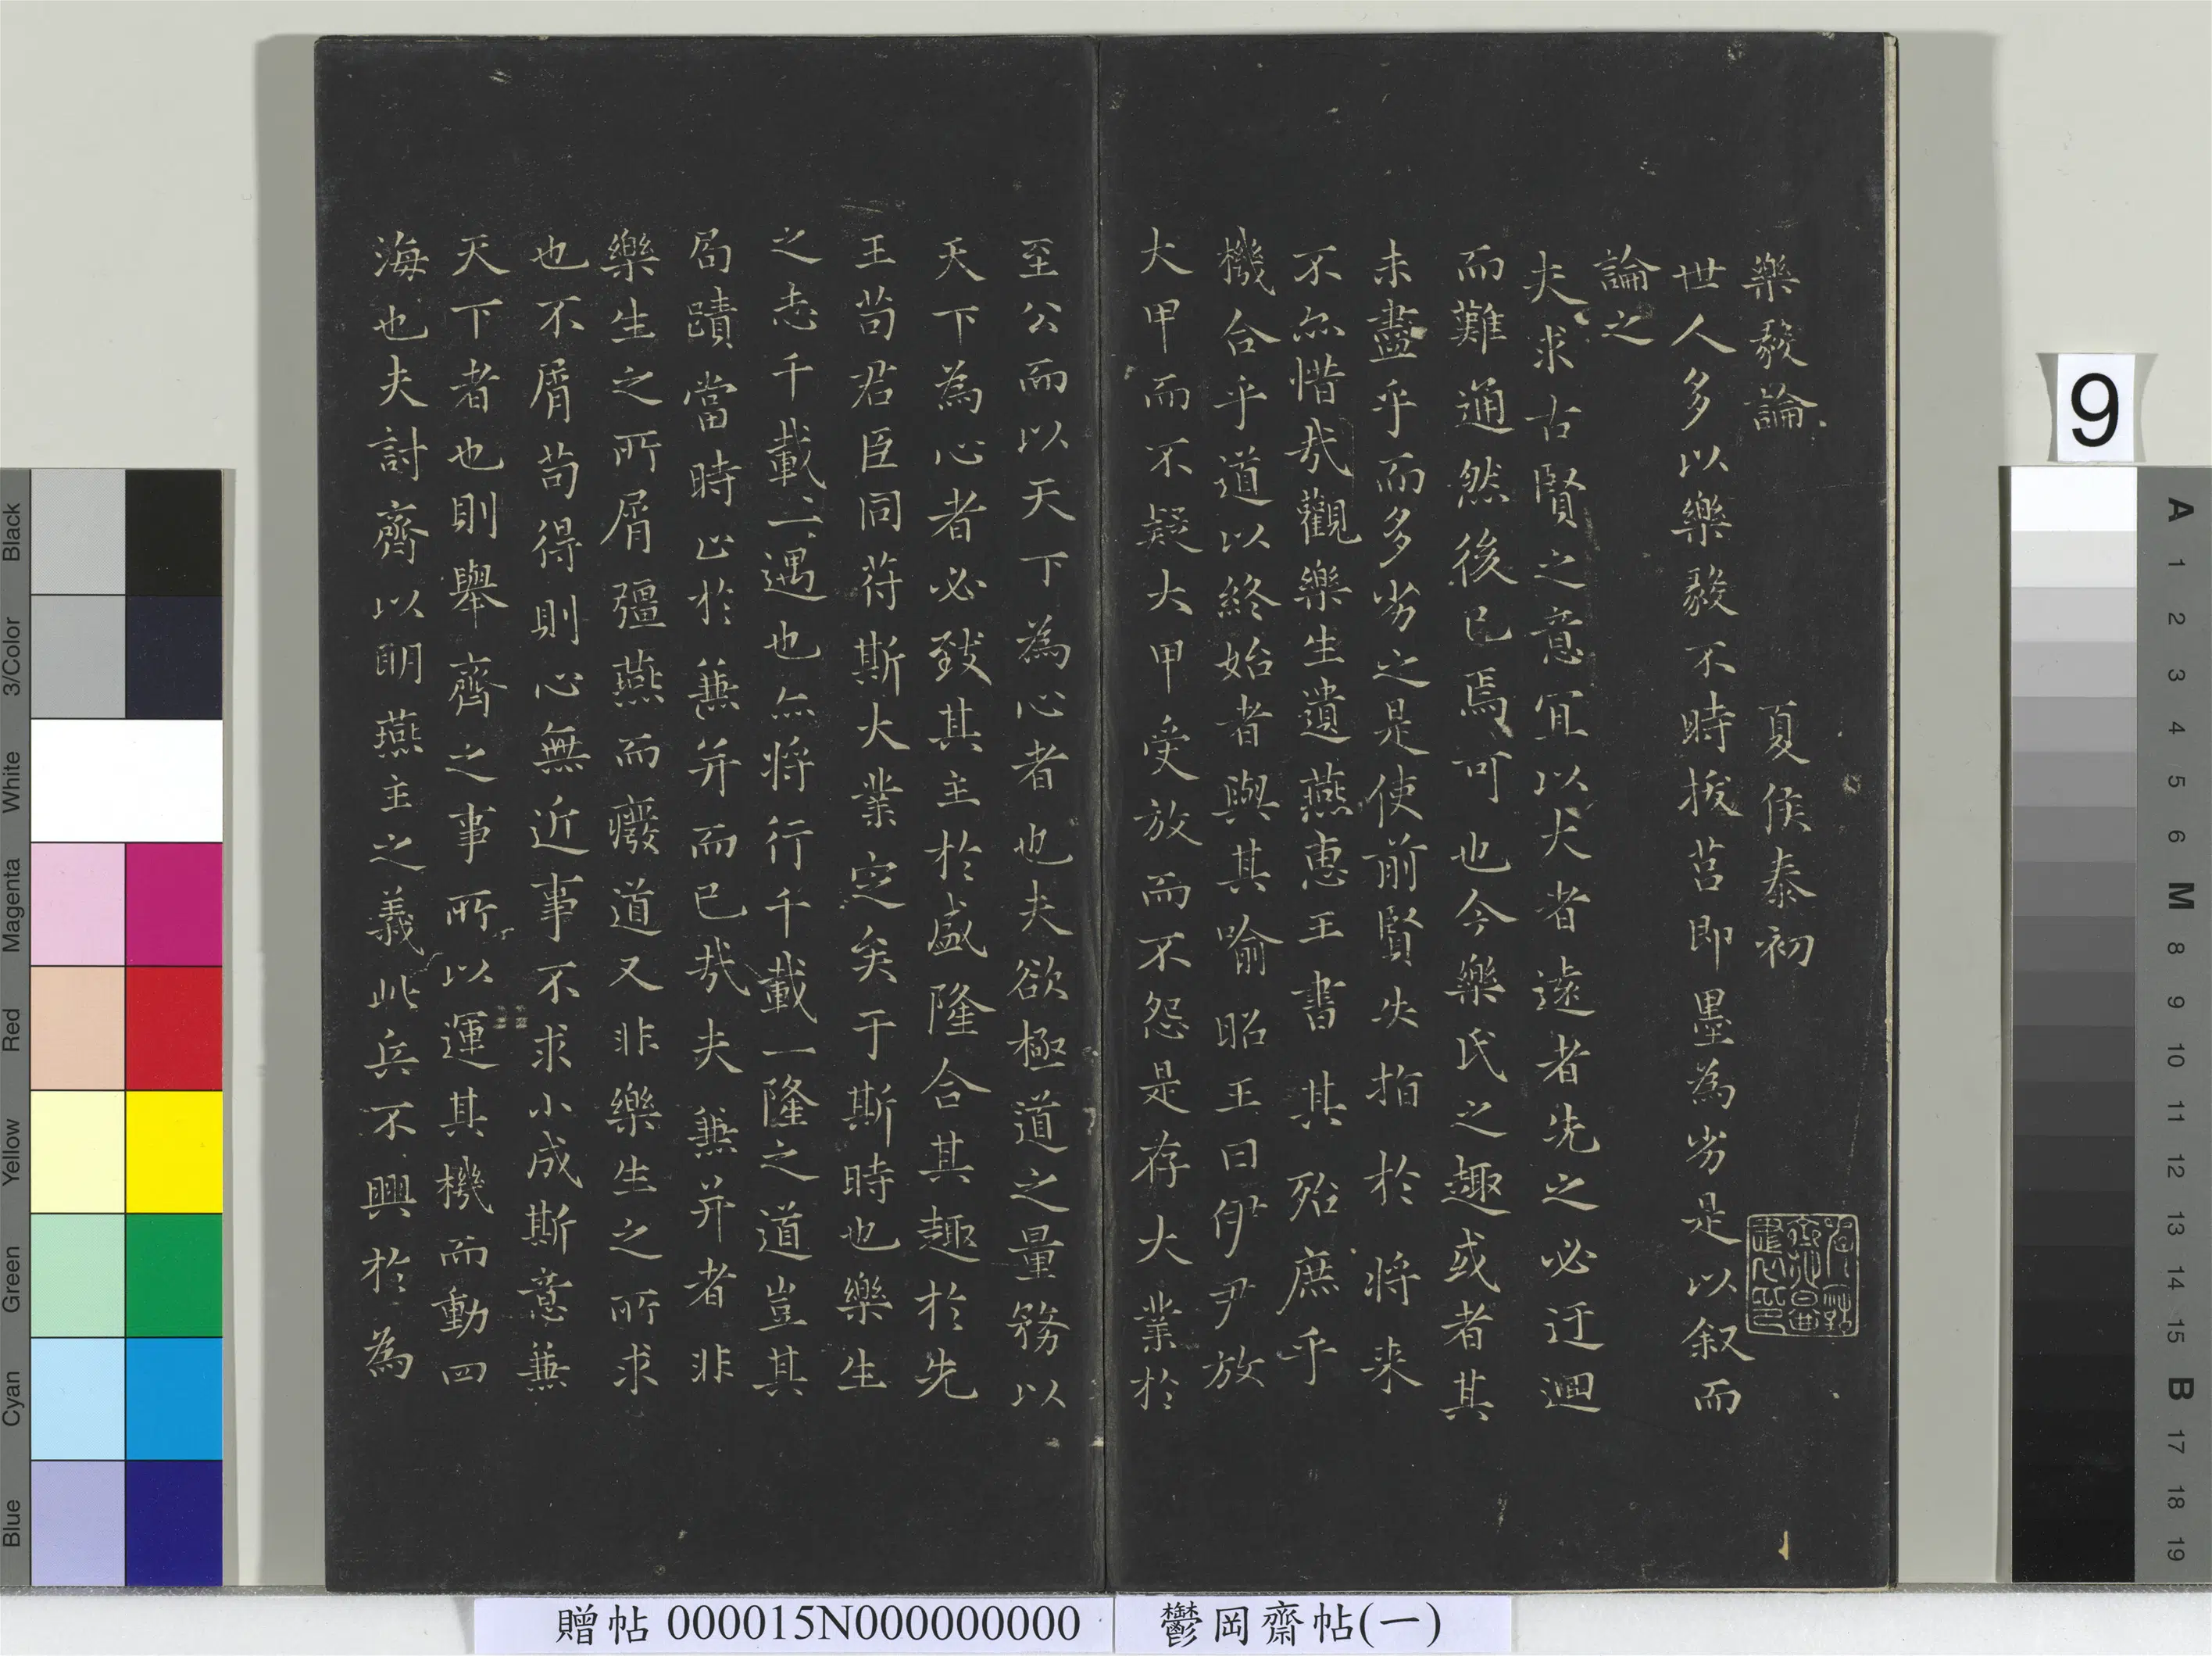 樂毅論
夏侯泰初
世人多以樂毅不時拔莒即墨為劣是以叙而
論之
夫求古賢之意冝以大者遠者先之必迂迴
而難通然後已焉可也今樂氏之趣或者其
未盡乎而多劣之是使前賢失指於將来
不亦惜哉觀樂生遺燕惠王書其殆庶乎
機合乎道以終始者與其喻昭王曰伊尹放
大甲而不疑大甲受放而不怨是存大業於
至公而以天下為心者也夫欲極道之量務以
天下為心者必致其主於盛隆合其趣於先
王苟君臣同苻斯大業定矣于斯時也樂生
之志千載一遇也亦將行千載一隆之道豈其
局蹟當時止於兼并而已哉夫兼并者非
樂生之所屑彊燕而癈道又非樂生之所求
也不屑苟得則心無近事不求小成斯意兼
天下者也則舉齊之事所以運其機而動四
海也夫討齊以明燕主之義此兵不興於為
9
贈帖 000015N000000000
鬱岡齋帖(一)
Black
3/Color
White
Magenta
Red
Yellow
Green
Cyan
Blue
A
1
2
3
4
5
6
M
8
9
10
11
12
13
14
15
B
17
18
19